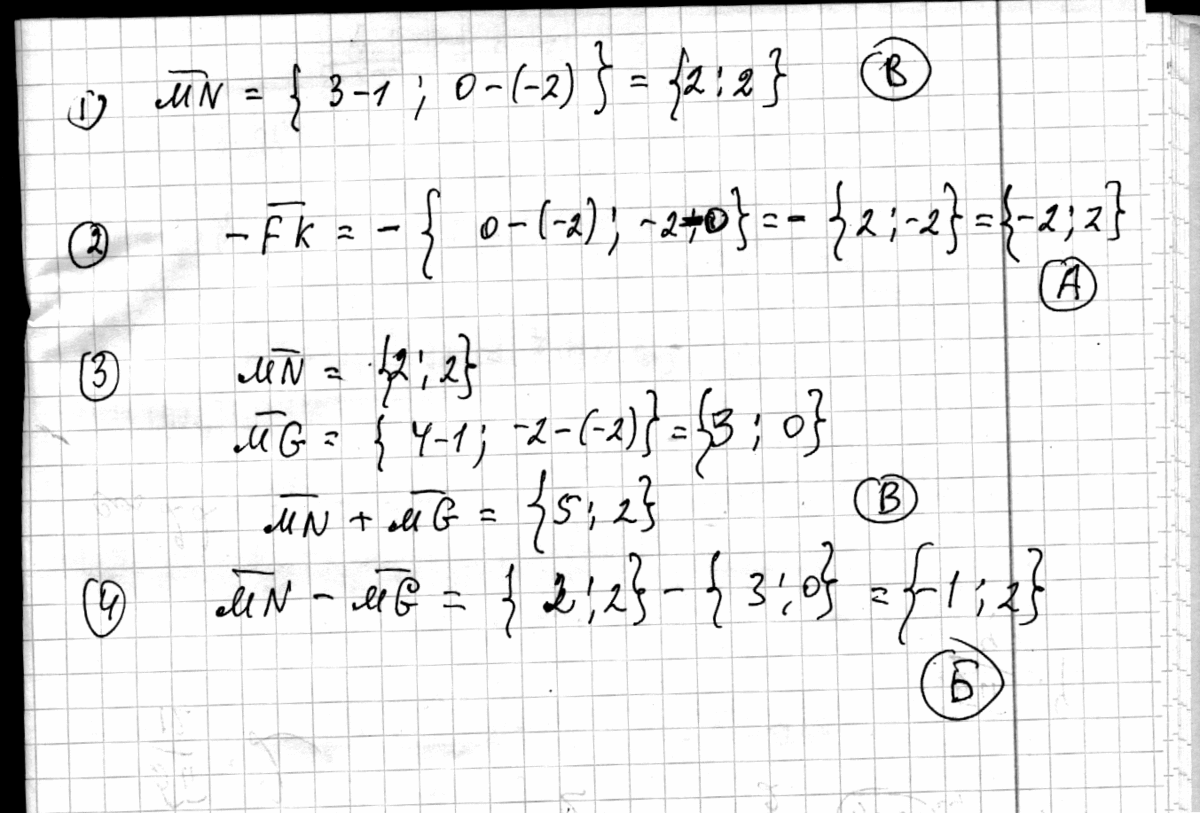 1) MN = { 3-1 ; 0-(-2) } = {2 ; 2} В
2 -FK = -{ 0-(-2) ; -2-0} = -{2 ; -2} = {-2 ; 2}
А
3 MN = {2 ; 2}
MG = { 4-1 ; -2-(-2)} = {3 ; 0}
MN + MG = {5 ; 2} В
4 MN - MG = { 2 ; 2} - { 3 ; 0} = {-1 ; 2}
Б